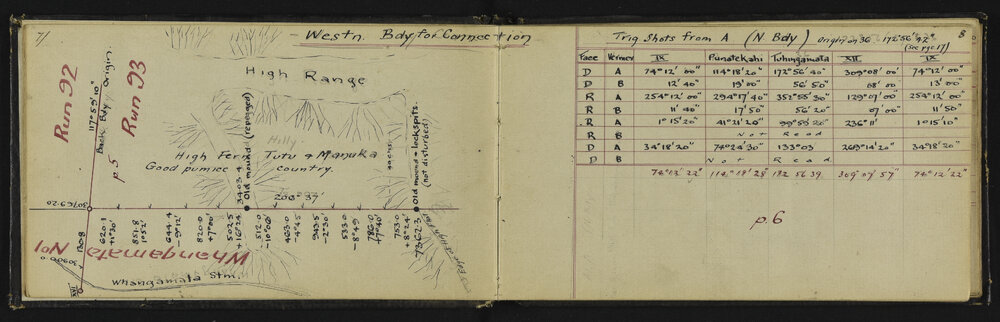 7/
Westn. Bdy for Connection
High Range
Run 92
117°59'10"
Back Bdy Origin.
Run 93
p 5
Old mound (repegged)
Hilly
High Fern Tutu & Manuka
Good pumice country.
3403.4
200° 37'
Old mound & lockspits.
(not disturbed)
620.1
+1°30'
851.8
1°52'
644.4
-9°12'
820.0
+7°00'
502.5
+16°24'
512.0
-10°00'
463.0
-4°45
943.5
-2°30'
533.0
-8°49'
786.0
+7°40'
753.0
-8°24'
7362.3
1308
Whangamata No1
Whangamata Stm.
XVI
8
Trig Shots from A (N Bdy) Origin on 36 172°56'42"
(see pge 17)
Face Vernier IX Punatekahi Tuhingamata XII IX
D A 74°12'00" 114°18'20" 172°56'40" 309°08'00" 74°12'00"
D B 12'40" 19'00" 56'50" 08'00 13'00"
R A 254°12'00" 294°17'40" 352°55'30" 129°07'00" 254°12'00"
R B 11'40" 17'50" 56'20" 07'00 11'50"
R A 1°15'20" 41°21'20" 99°59'20" 236°11' 1°15'10"
R B Not Read
D A 34°18'20" 74°24'30" 133°03' 269°14'20" 34°18'20"
D B Not Read
74°12'22" 114°18'28 172 56 39 309°07'57" 74°12'22"
p.6